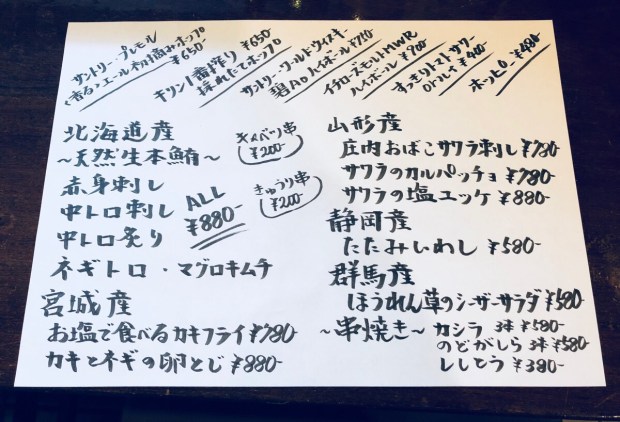 サントリープレモル
〈香る〉エール 初摘みホップ
¥650-
キリン一番搾り ¥650
採れたてホップ
サントリーワールドウイスキー
碧Ao ハイボール ¥720
イチローズモルトMWR
ハイボール ¥900
すっきりトマトサワー
¥400
ホッピー ¥480
北海道産
～天然生本鮪～
赤身刺し
中トロ刺し
中トロ炙り
ALL
¥880-
ネギトロ・マグロキムチ
キャベツ串
¥200-
きゅうり串
¥200-
宮城産
お塩で食べるカキフライ ¥780
カキとネギの卵とじ ¥880-
山形産
庄内おばこサワラ刺し ¥780
サワラのカルパッチョ ¥780
サワラの塩ユッケ ¥880
静岡産
たたみいわし ¥580-
群馬産
ほうれん草のシーザーサラダ ¥580
～串焼き～ カシラ 3本 ¥580-
のどがしら 3本 ¥580
ししとう ¥380-